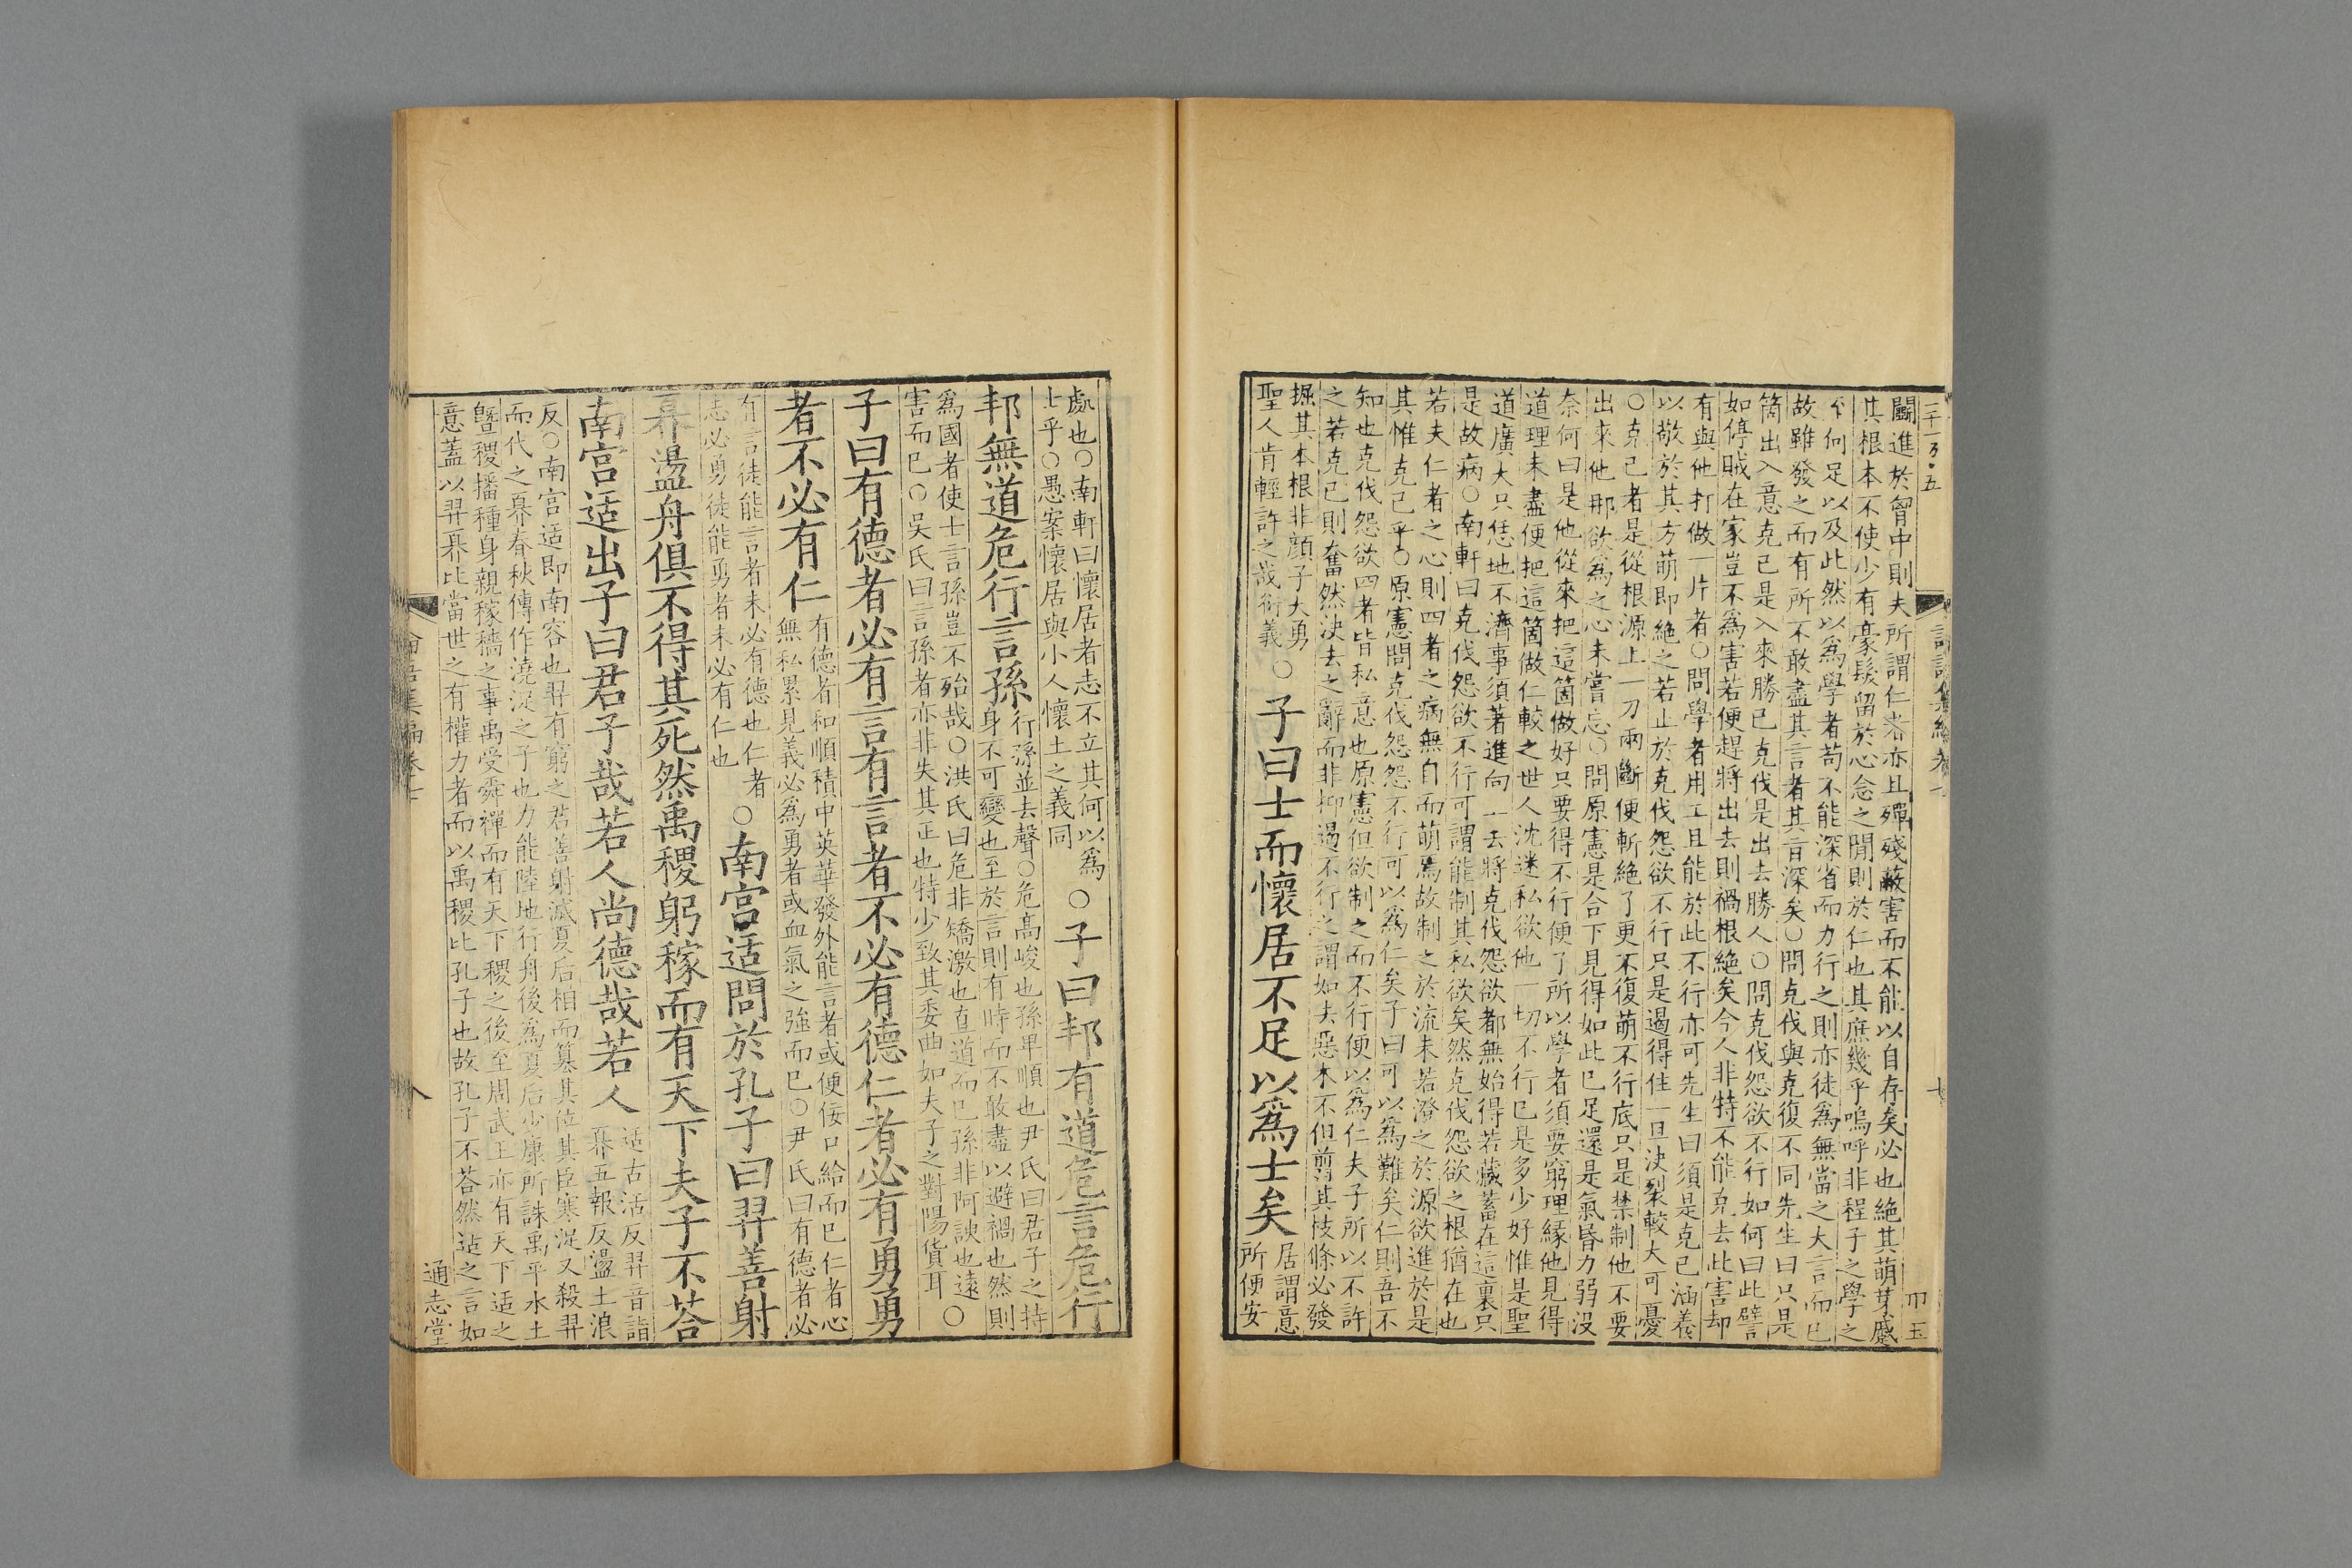 二千一百五
論語集編卷七
七
卬玉
闘進於胷中則夫所謂仁者亦且殫殘蔽害而不能以自存矣必也絶其萌芽蹙
其根本不使少有豪髮留於心念之閒則於仁也其庶幾乎嗚呼非程子之學之
至何足以及此然以爲學者苟不能深省而力行之則亦徒爲無當之大言而已
故雖發之而有所不敢盡其言者其旨深矣○問克伐與克復不同先生曰只是
箇出入意克己是入來勝已克伐是出去勝人○問克伐怨欲不行如何曰此譬
如停賊在家豈不爲害若便趕將出去則禍根絶矣今人非特不能克去此害却
有與他打做一片者○問學者用工且能於此不行亦可先生曰須是克己涵養
以敬於其方萌即絶之若止於克伐怨欲不行只是遏得住一旦決裂較大可憂
○克己者是從根源上一刀兩斷便斬絶了更不復萌不行底只是禁制他不要
出來他那欲爲之心未嘗忘○問原憲是合下見得如此已足還是氣昏力弱没
奈何曰是他從來把這箇做好只要得不行便了所以學者須要窮理緣他見得
道理未盡便把這箇做仁較之世人沈迷私欲他一切不行已是多少好惟是聖
道廣大只恁地不濟事須著進向一去將克伐怨欲都無始得若藏蓄在這裏只
是故病○南軒曰克伐怨欲不行可謂能制其私欲矣然克伐怨欲之根猶在也
若夫仁者之心則四者之病無自而萌焉故制之於流未若澄之於源欲進於是
其惟克己乎○原憲問克伐怨欲不行可以爲仁矣子曰可以爲難矣仁則吾不
知也克伐怨欲四者皆私意也原憲但欲制之而不行便以爲仁夫子所以不許
之若克已則奮然決去之辭而非抑遏不行之謂如去惡木不但剪其枝條必發
掘其本根非顔子大勇
聖人肯輕許之哉衍義
○子曰士而懷居不足以爲士矣
居謂意
所便安
處也○南軒曰懷居者志不立其何以爲
士乎○愚案懷居與小人懷土之義同
○子曰邦有道危言危行
邦無道危行言孫
行孫並去聲○危高峻也孫卑順也尹氏曰君子之持
身不可變也至於言則有時而不敢盡以避禍也然則
爲國者使士言孫豈不殆哉○洪氏曰危非矯激也直道而已孫非阿諛也遠
害而已○吳氏曰言孫者亦非失其正也特少致其委曲如夫子之對陽貨耳
○
子曰有德者必有言有言者不必有德仁者必有勇勇
者不必有仁
有德者和順積中英華發外能言者或便佞口給而已仁者心
無私累見義必爲勇者或血氣之強而已○尹氏曰有德者必
有言徒能言者未必有德也仁者
志必勇徒能勇者未必有仁也
○南宮适問於孔子曰羿善射
奡盪舟俱不得其死然禹稷躬稼而有天下夫子不荅
南宮适出子曰君子哉若人尚德哉若人
适古活反羿音詣
奡五報反盪土浪
反○南宮适即南容也羿有窮之君善射滅夏后相而簒其位其臣寒浞又殺羿
而代之奡春秋傳作澆浞之子也力能陸地行舟後爲夏后少康所誅禹平水土
曁稷播種身親稼穡之事禹受舜禪而有天下稷之後至周武王亦有天下适之
意蓋以羿奡比當世之有權力者而以禹稷比孔子也故孔子不荅然适之言如
論語集編卷七
八
通志堂